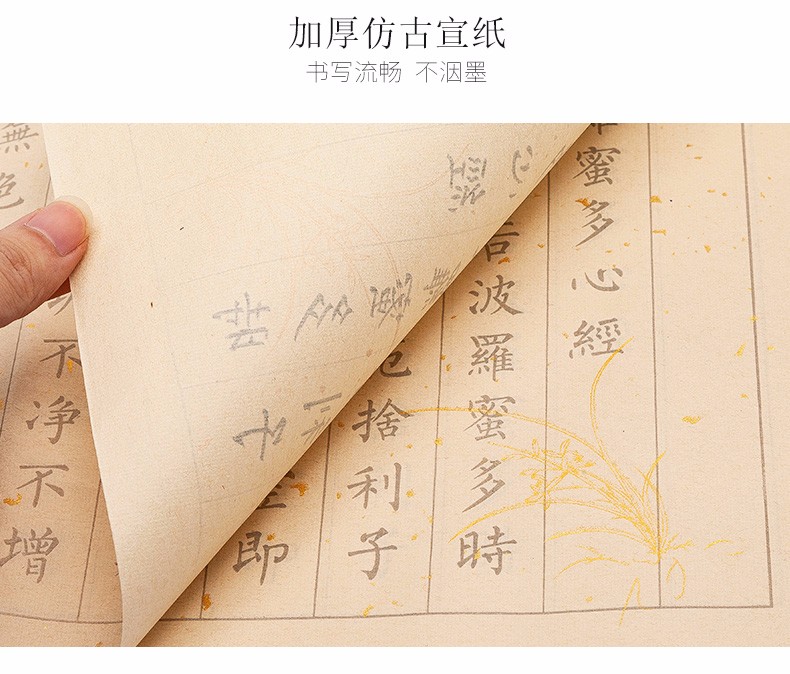 加厚仿古宣纸
书写流畅 不洇墨
蜜多心經
告波羅蜜多時
色捨利子
即
不净不增
無色